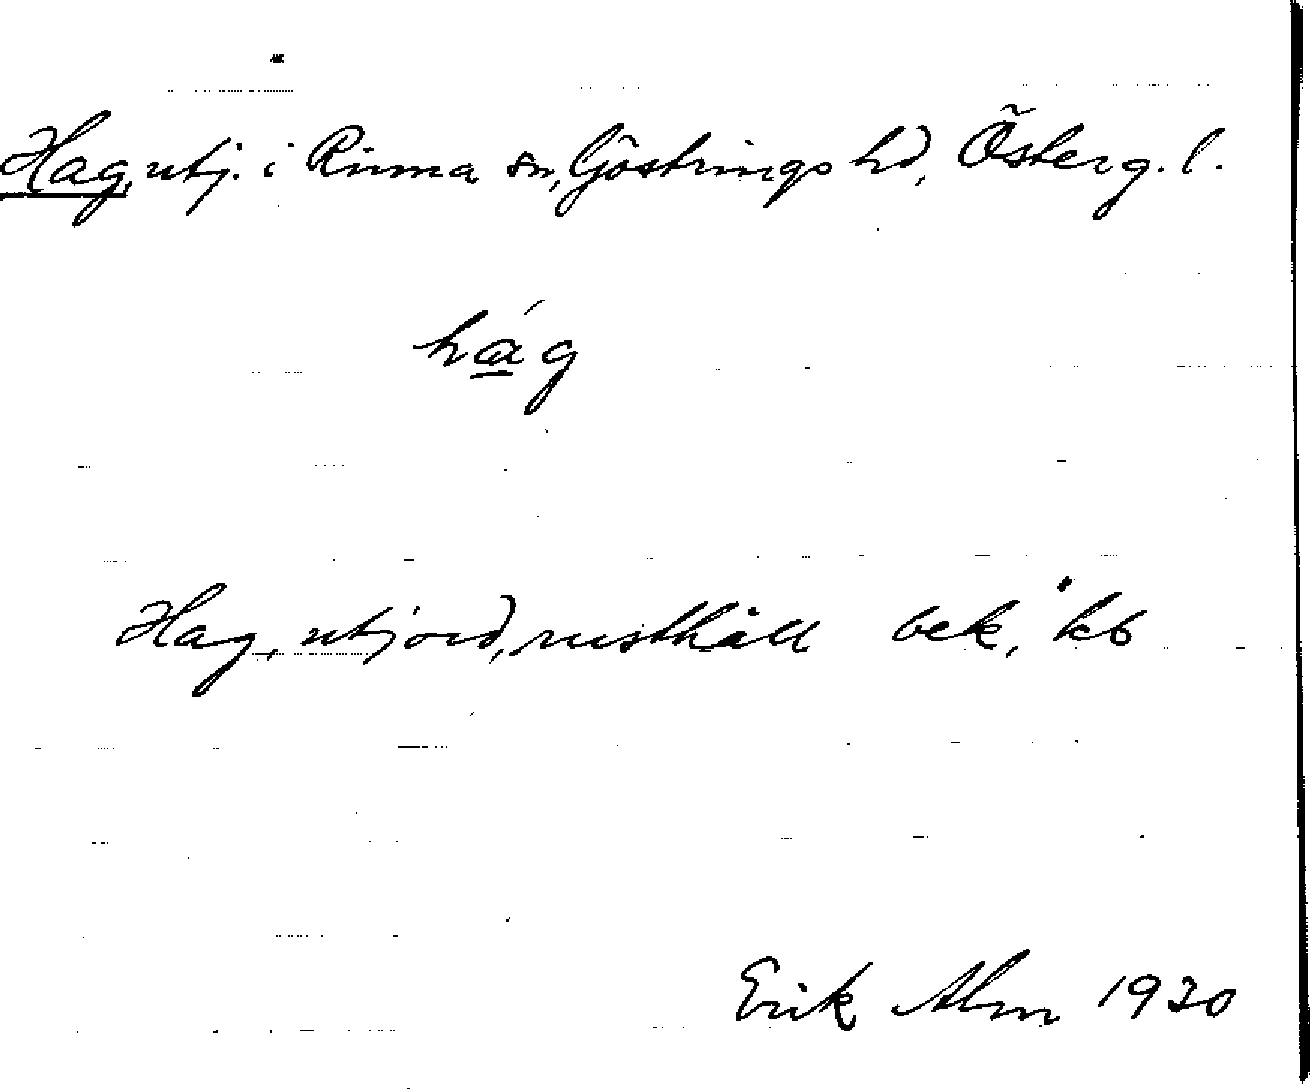 Hag, utj. i Rinna sn, Göstrings hd, Österg. l.
há̲g
Hag, utjord, rusthåll bek, kb
Erik Alm 1930